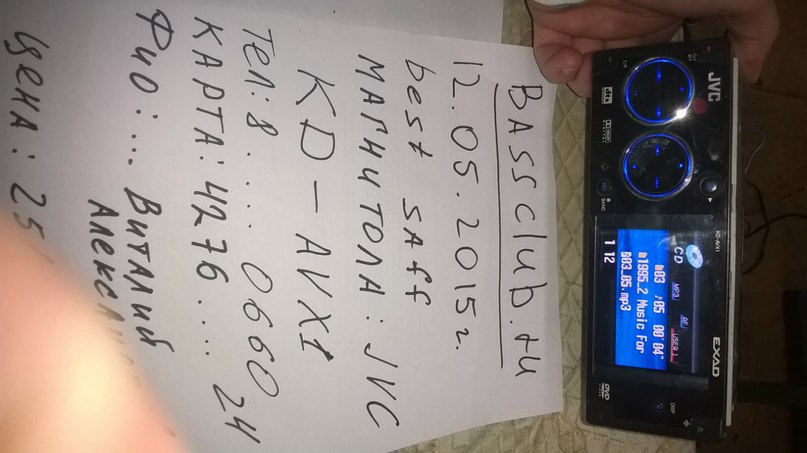 BASSclub.ru
12.05.2015г.
best saff
МАГНИТОЛА: JVC
KD-AVX1
ТЕЛ: 8..... 0660
КАРТА: 4276.... 24
ФИО:... Виталий
цена: 25
JVC
KD-AVX1
EXAD
CD
MP3
USER 1
03 05 00'04"
1995_2 Music For
003_05.mp3
1 12
BAND
DISP
T/P
dts
DVD